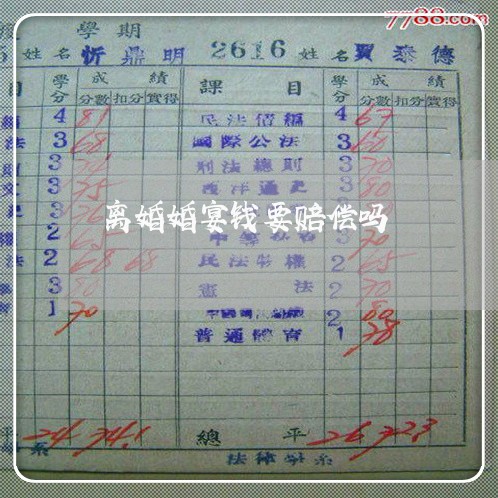 7788.com
學期
姓名 忻鼎明 2616 姓名 賈泰德
目 學分 成績 課目 學分 成績
分數 扣分 實得 分數 扣分 實得
4 81 民法債編 4 67
法 3 68 國際公法 3 60
3 刑法總則 3 70
3 75 西洋通史 3 80
3 76 3
离婚婚宴钱要赔偿吗
2 3 70
法 2 68 68 民法物權 2 65
3 80 憲法 2 70
1 70 2 80
普通體育 1 78
平 24 74.1 總平 26 72.3
系 法律學系